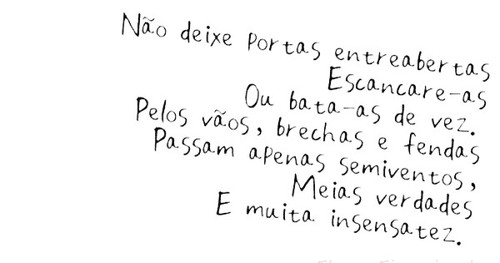 Não deixe portas entreabertas
Escancare-as
Ou bata-as de vez.
Pelos vãos, brechas e fendas
Passam apenas semiventos,
Meias verdades
E muita insensatez.